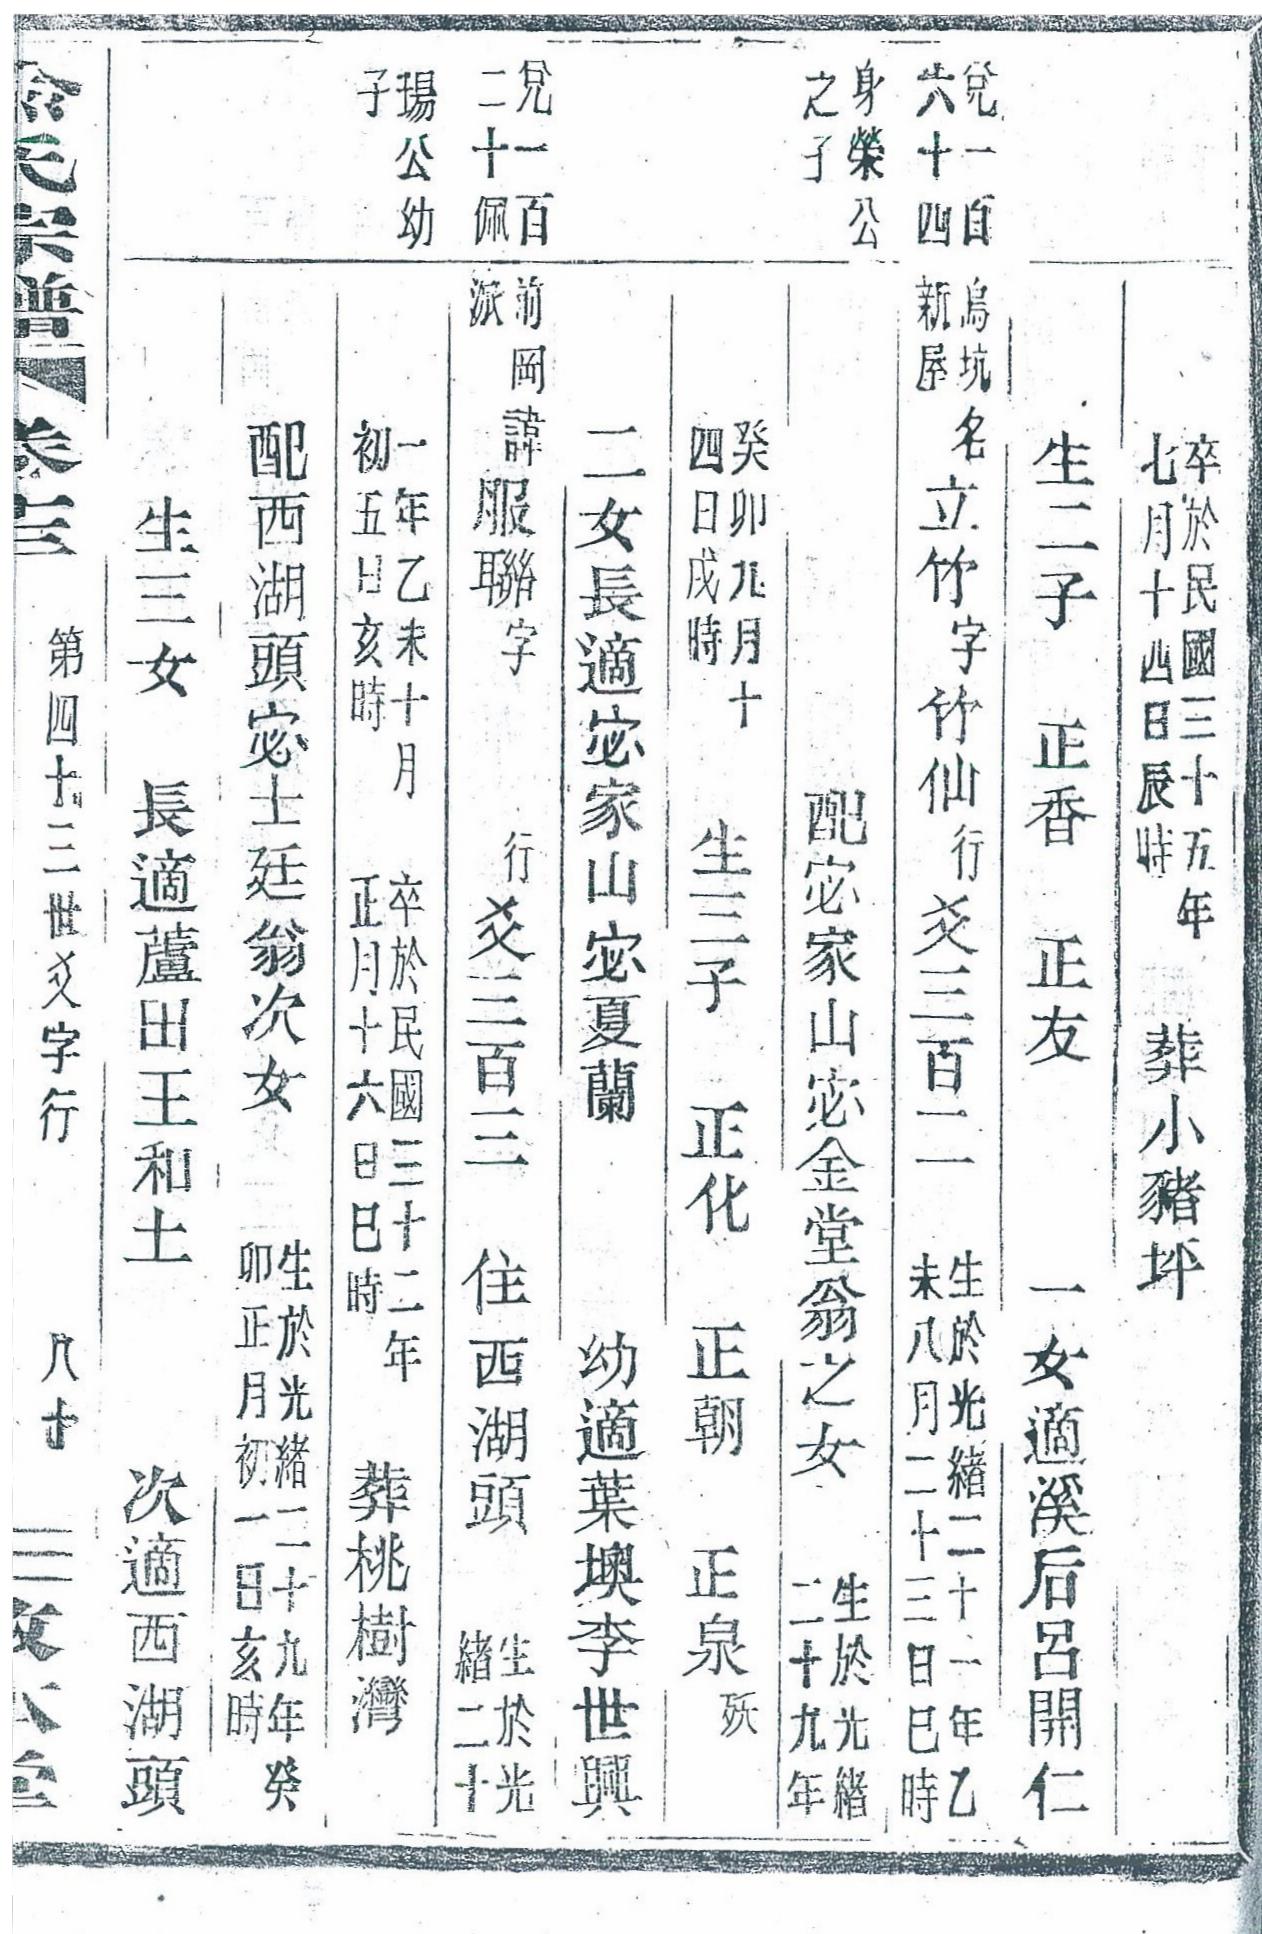 卒於民國三十五年
七月十四日辰時
葬小豬坪
生二子 正香 正友 一女適溪后呂開仁
兌一百
六十四
烏坑
新屋
名立竹字竹仙行爻三百二
生於光緒二十一年乙
未八月二十三日巳時
身榮公
之子
配宓家山宓金堂翁之女
生於光緒
二十九年
癸卯九月十
四日戌時
生三子 正化 正朝 正泉殀
二女長適宓家山宓夏蘭 幼適葉墺李世興
兌一百
二十佩
前岡
派
諱服聯字 行爻三百三 住西湖頭
生於光
緒二十
瑒公幼
子
一年乙未十月
初五日亥時
卒於民國三十二年
正月十六日巳時
葬桃樹灣
配西湖頭宓士廷翁次女
生於光緒二十九年癸
卯正月初一日亥時
生三女 長適蘆田王和土 次適西湖頭
氏宗譜 卷三 第四十三世爻字行 八十 堂